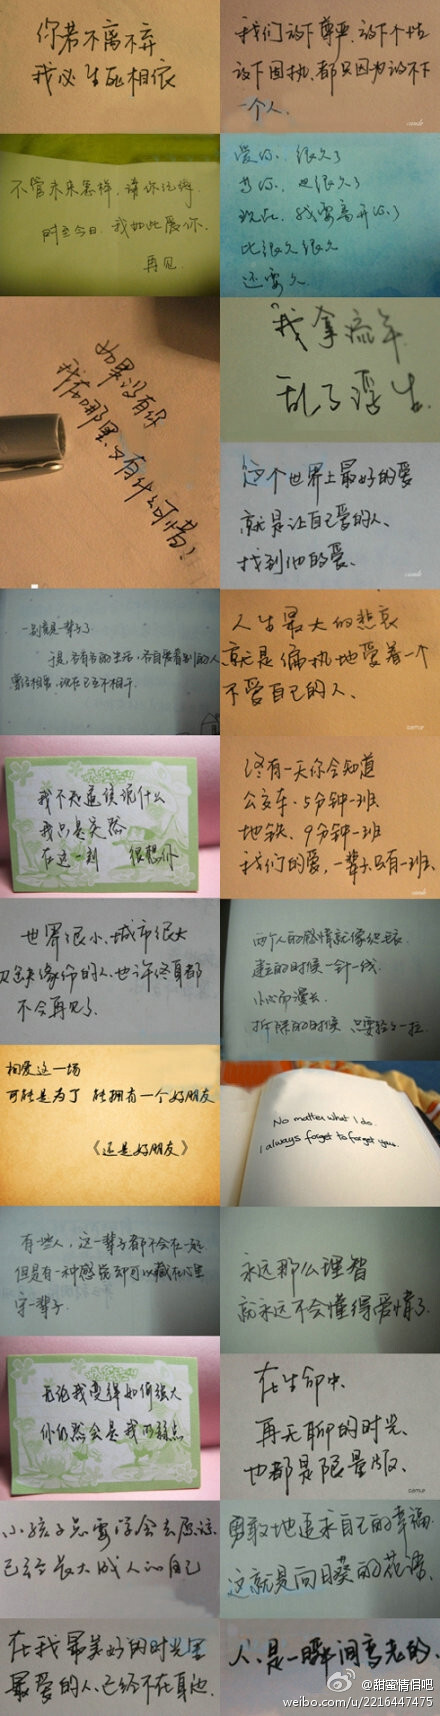 你若不离不弃
我必生死相依
我们放下尊严、放下个性
放下固执、都只因为放不下
一个人.
不管未来怎样,请你记得.
时至今日.我如此爱你.
再见.
爱你.很久了
等你.也很久了
现在.我要离开你了
比很久很久
还要久
如果没有你
我在哪里又有什么可惜!
我拿流年
乱了浮生.
这个世界上最好的爱
就是让自己爱的人、
找到他的爱、
一别竟是一辈子了
于是,各有各的生活,各自爱着别的人
曾经相爱,现在已互不相干.
人生最大的悲哀
就是偏执地爱着一个
不爱自己的人、
我不知道该说什么
我只是突然
在这一刻 很想你
终有一天你会知道
公交车.5分钟一班
地铁、9分钟一班
我们的爱,一辈子只有一班、
世界很小、城市很大
没缘份的人、也许终身都
不会再见了.
两个人的感情就像织毛衣
建立的时候一针一线.
小心而漫长.
拆除的时候 只要轻轻一拉
相爱这一场
可能是为了 能拥有一个好朋友
《还是好朋友》
No matter what I do.
I always forget to forget you.
有些人,这一辈子都不会在一起
但是有一种感觉却可以藏在心里
守一辈子.
永远那么理智
就永远不会懂得爱情了
无论我变得如何强大
你仍然会是我的弱点
在生命中
再无聊的时光、
也都是限量版、
小孩子总要学会去原谅
已经长大成人的自己
勇敢地追求自己的幸福
这就是向日葵的花语.
在我最美好的时光里
最爱的人、已经不在身边.
人、是一瞬间变老的.
@甜蜜情侣吧
weibo.com/u/2216447475